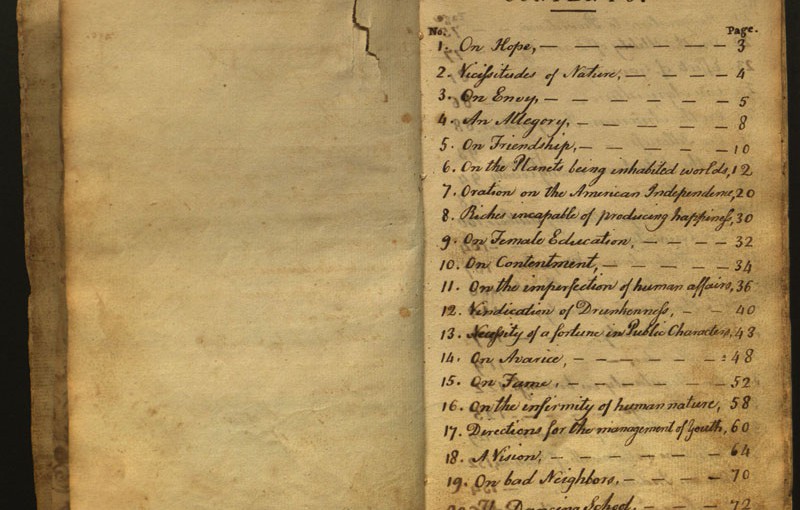 CONTENTS.
No. Page.
1. On Hope, — — — — — — 3
2. Vicissitudes of Nature, — — — — 4
3. On Envy, — — — — — — 5
4. An Allegory, — — — — — 8
5. On Friendship, — — — — — 10
6. On the Planets being inhabited worlds, 12
7. Oration on the American Independence, 20
8. Riches incapable of producing happiness, 30
9. On Female Education, — — — 32
10. On Contentment, — — — — — 34
11. On the imperfection of human affairs, 36
12. Vindication of Drunkenness, — — 40
13. Necessity of a fortune in Public Characters, 43
14. On Avarice, — — — — — — : 48
15. On Fame, — — — — — — 52
16. On the infirmity of human nature, 58
17. Directions for the management of Youth, 60
18. A Vision, — — — — — — 64
19. On bad Neighbors, — — — — 70
20. The Dancing School, — — — — 72